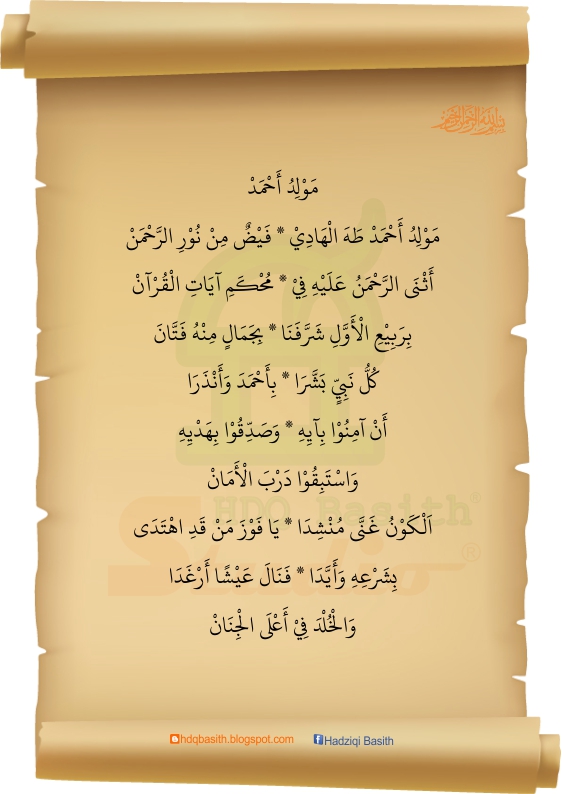 بسم الله الرحمن الرحيم
مَوْلِدُ أَحْمَدْ
مَوْلِدُ أَحْمَدْ طَهَ الْهَادِيْ * فَيْضٌ مِنْ نُوْرِ الرَّحْمَنْ
أَثْنَى الرَّحْمَنُ عَلَيْهِ فِيْ * مُحْكَمِ آيَاتِ الْقُرْآنْ
بِرَبِيْعِ الْأَوَّلِ شَرَّفَنَا * بِجَمَالٍ مِنْهُ فَتَّانَ
كُلُّ نَبِيٍّ بَشَّرَا * بِأَحْمَدَ وَأَنْذَرَا
أَنْ آمِنُوْا بِآيِهِ * وَصَدِّقُوْا بِهَدْيِهِ
وَاسْتَبِقُوْا دَرْبَ الْأَمَانْ
HDQ Basith®
Studio®
اَلْكَوْنُ غَنَّى مُنْشِدَا * يَا فَوْزَ مَنْ قَدِ اهْتَدَى
بِشَرْعِهِ وَأَيَّدَا * فَنَالَ عَيْشًا أَرْغَدَا
وَالْخُلْدَ فِيْ أَعْلَى الْجِنَانْ
hdqbasith.blogspot.com Hadziqi Basith